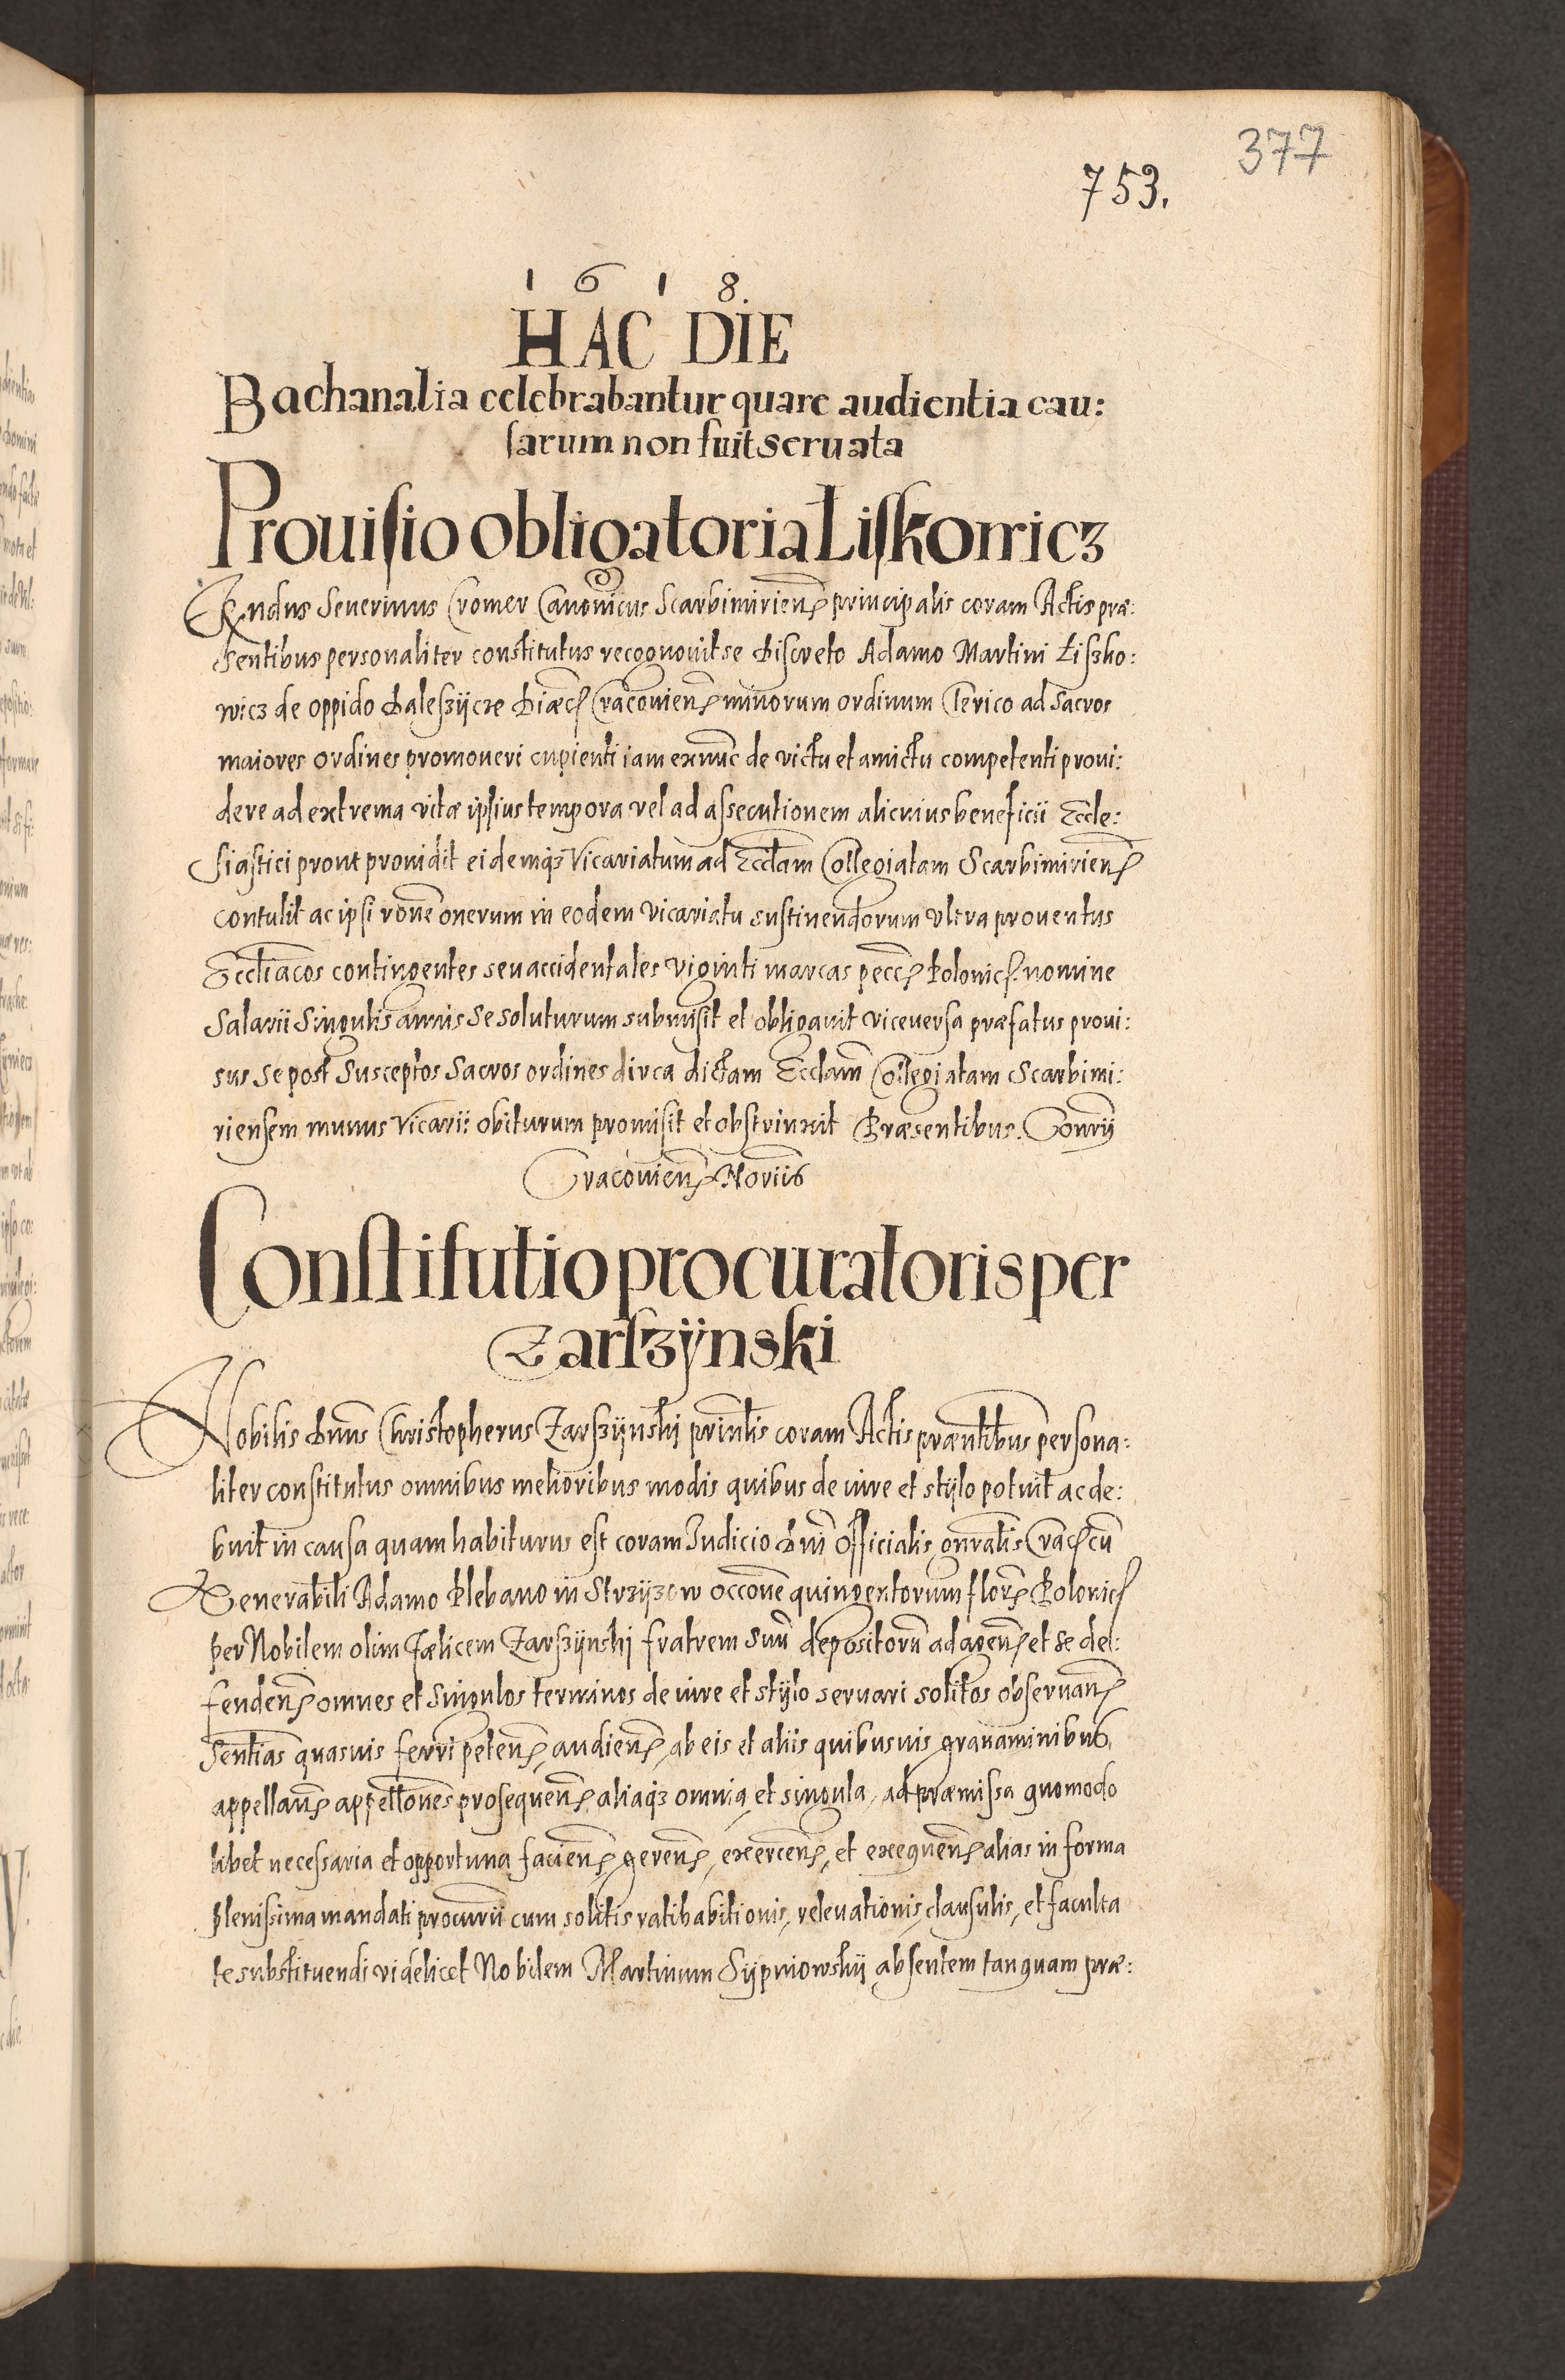 377
753.
1618.
HAC DIE
Bachanalia celebrabantur quare audientia cau:
sarum non fuit seruata
Prouisio obligatoria Liskowicz
Rndus Seuerinus Cromer Canonicus Scarbimirien principalis coram Actis præ:
sentibus personaliter constitutus recognouit se Discreto Adamo Martini Liszko:
wicz de oppido Daleszÿcze Diæc Cracouien minorum ordinum Clerico ad Sacros
maiores ordines promoueri cupienti iam exnunc de victu et amictu competenti proui:
dere ad extrema vitæ ipsius tempora vel ad assecutionem alicuius beneficii Eccle:
siastici prout prouidit eidemq3 Vicariatum ad Ecclam Collegiatam Scarbimirien
contulit ac ipsi rone onerum in eodem vicariatu sustinendorum vltra prouentus
Eccliacos contingentes seu accidentales viginti marcas pecc Polonic nomine
Salarii Singulis annis Se Soluturum submisit et obligauit viceuersa præfatus proui:
sus Se post Susceptos Sacros ordines circa dictam Ecclam Collegiatam Scarbimi:
riensem munus Vicarii obiturum promisit et obstrinxit Præsentibus Conrÿ
Cracouien Noriis
Constitutio procuratoris per
Zarszÿnski
Nobilis Dnus Christopherus Zarszÿnski prinlis coram Actis præntibus persona:
liter constitutus omnibus melioribus modis quibus de iure et stÿlo potuit ac de:
buit in causa quam habiturus est coram Iudicio Dni Officialis gnralis Crac cu
Venerabili Adamo Plebano in Strzÿzow occone quingentorum flor Polonic
per Nobilem olim Fælicem Zarszÿnski fratrem Suu depositoru ad agen et se de:
fenden omnes et Singulos terminos de iure et stÿlo seruari solitos obseruan
Sentias quasuis ferri peten, audien, ab eis et aliis quibusuis grauaminibus,
appellan appellones prosequen aliaq3 omnia et singula, ad præmissa quomodo
libet necessaria et opportuna facien, geren, exercen, et exequen alias in forma
plenissima mandati procurii cum solitis ratihabitionis, releuationis, clausulis, et faculta
te substituendi videlicet Nobilem Martinum Sÿpniowskÿ absentem tanquam præ: